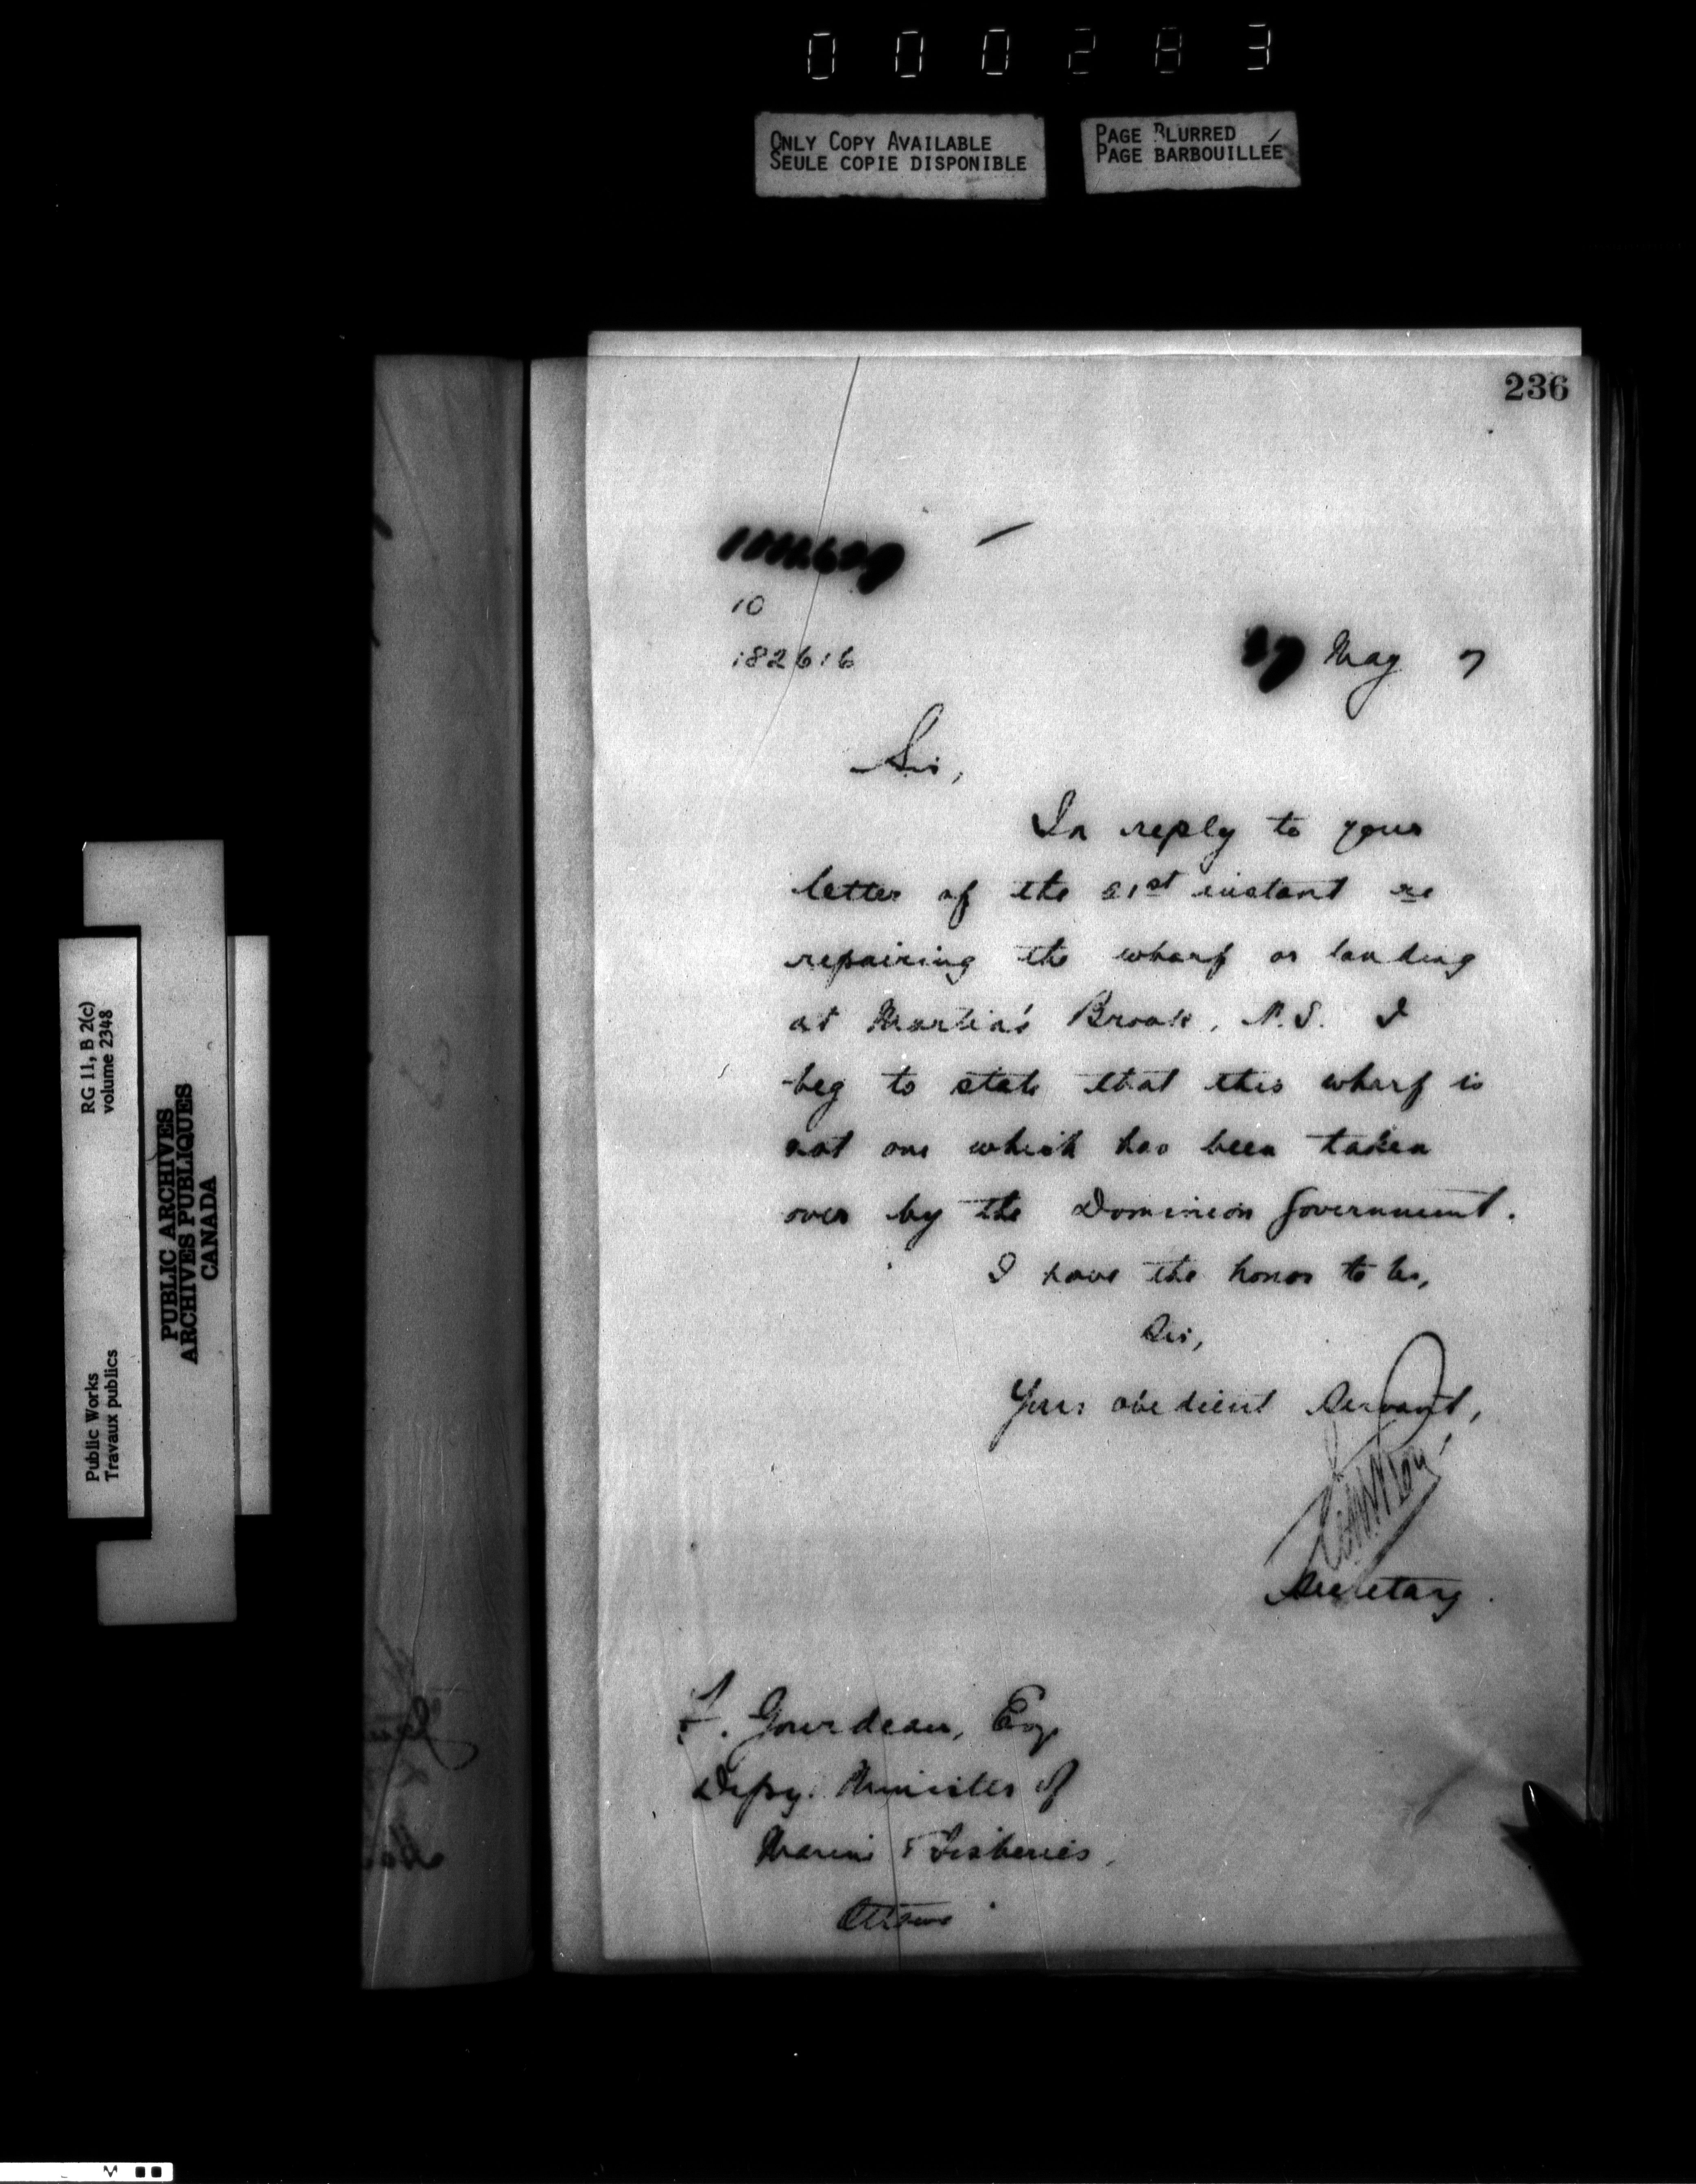 000283
ONLY COPY AVAILABLE
SEULE COPIE DISPONIBLE
PAGE BLURRED
PAGE BARBOUILLÉE
236
10
182616
27 May 7
Sir,
In reply to your
letter of the 21st instant re
repairing the wharf or landing
at Martin's Brook, N.S. I
beg to state that this wharf is
not one which has been taken
over by the Dominion Government.
I have the honor to be,
Sir,
Your obedient Servant,
Secretary.
F. Gourdeau, Esq
Depy. Minister of
Marine & Fisheries,
Ottawa
RG 11, B 2(c)
volume 2348
Public Works
Travaux publics
PUBLIC ARCHIVES
ARCHIVES PUBLIQUES
CANADA